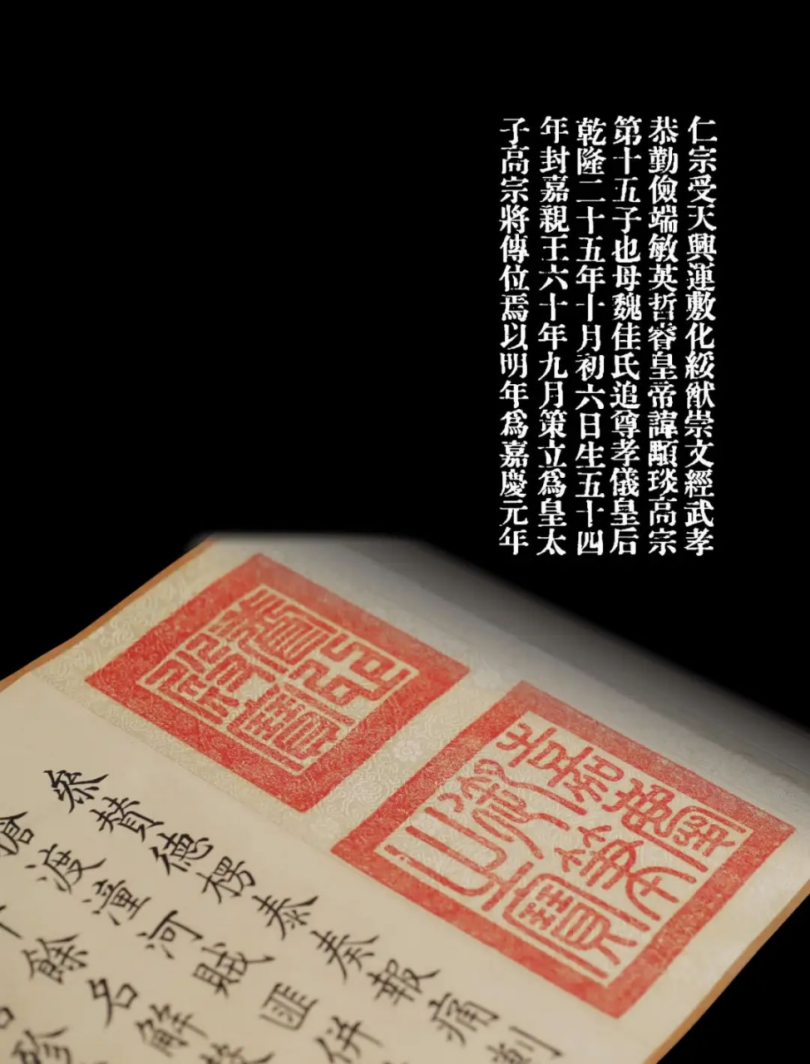 仁宗受天興運敷化綏猷崇文經武孝
恭勤儉端敏英哲睿皇帝諱顒琰高宗
第十五子也母魏佳氏追尊孝儀皇后
乾隆二十五年十月初六日生五十四
年封嘉親王六十年九月策立爲皇太
子高宗將傳位焉以明年爲嘉慶元年
嘉慶御筆之寶
參贊德楞泰奏報痛剿
搶渡潼河賊匪併
餘名解